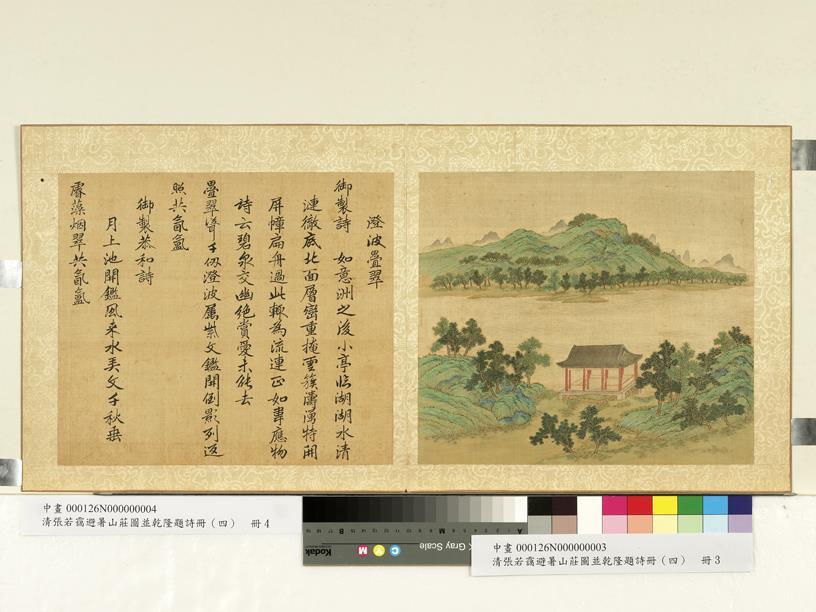 澄波疊翠
御製詩　如意洲之後小亭臨湖湖水清
漣徹底北面層巒重掩雲簇濤湧特開
屏幛扁舟過此輒為流連正如韋應物
詩云碧泉交幽絕賞愛未能去
疊翠聳千仞澄波屬紫文鑑開倒影列返
照共氤氳
御製恭和詩
月上池開鑑風来水文千秋垂
睿藻烟翠共氤氳
中畫 000126N000000004
清張若靄避暑山莊圖並乾隆題詩冊（四）　冊4
Kodak Gray Scale
C Y M
A M B
中畫 000126N000000003
清張若靄避暑山莊圖並乾隆題詩冊（四）　冊3